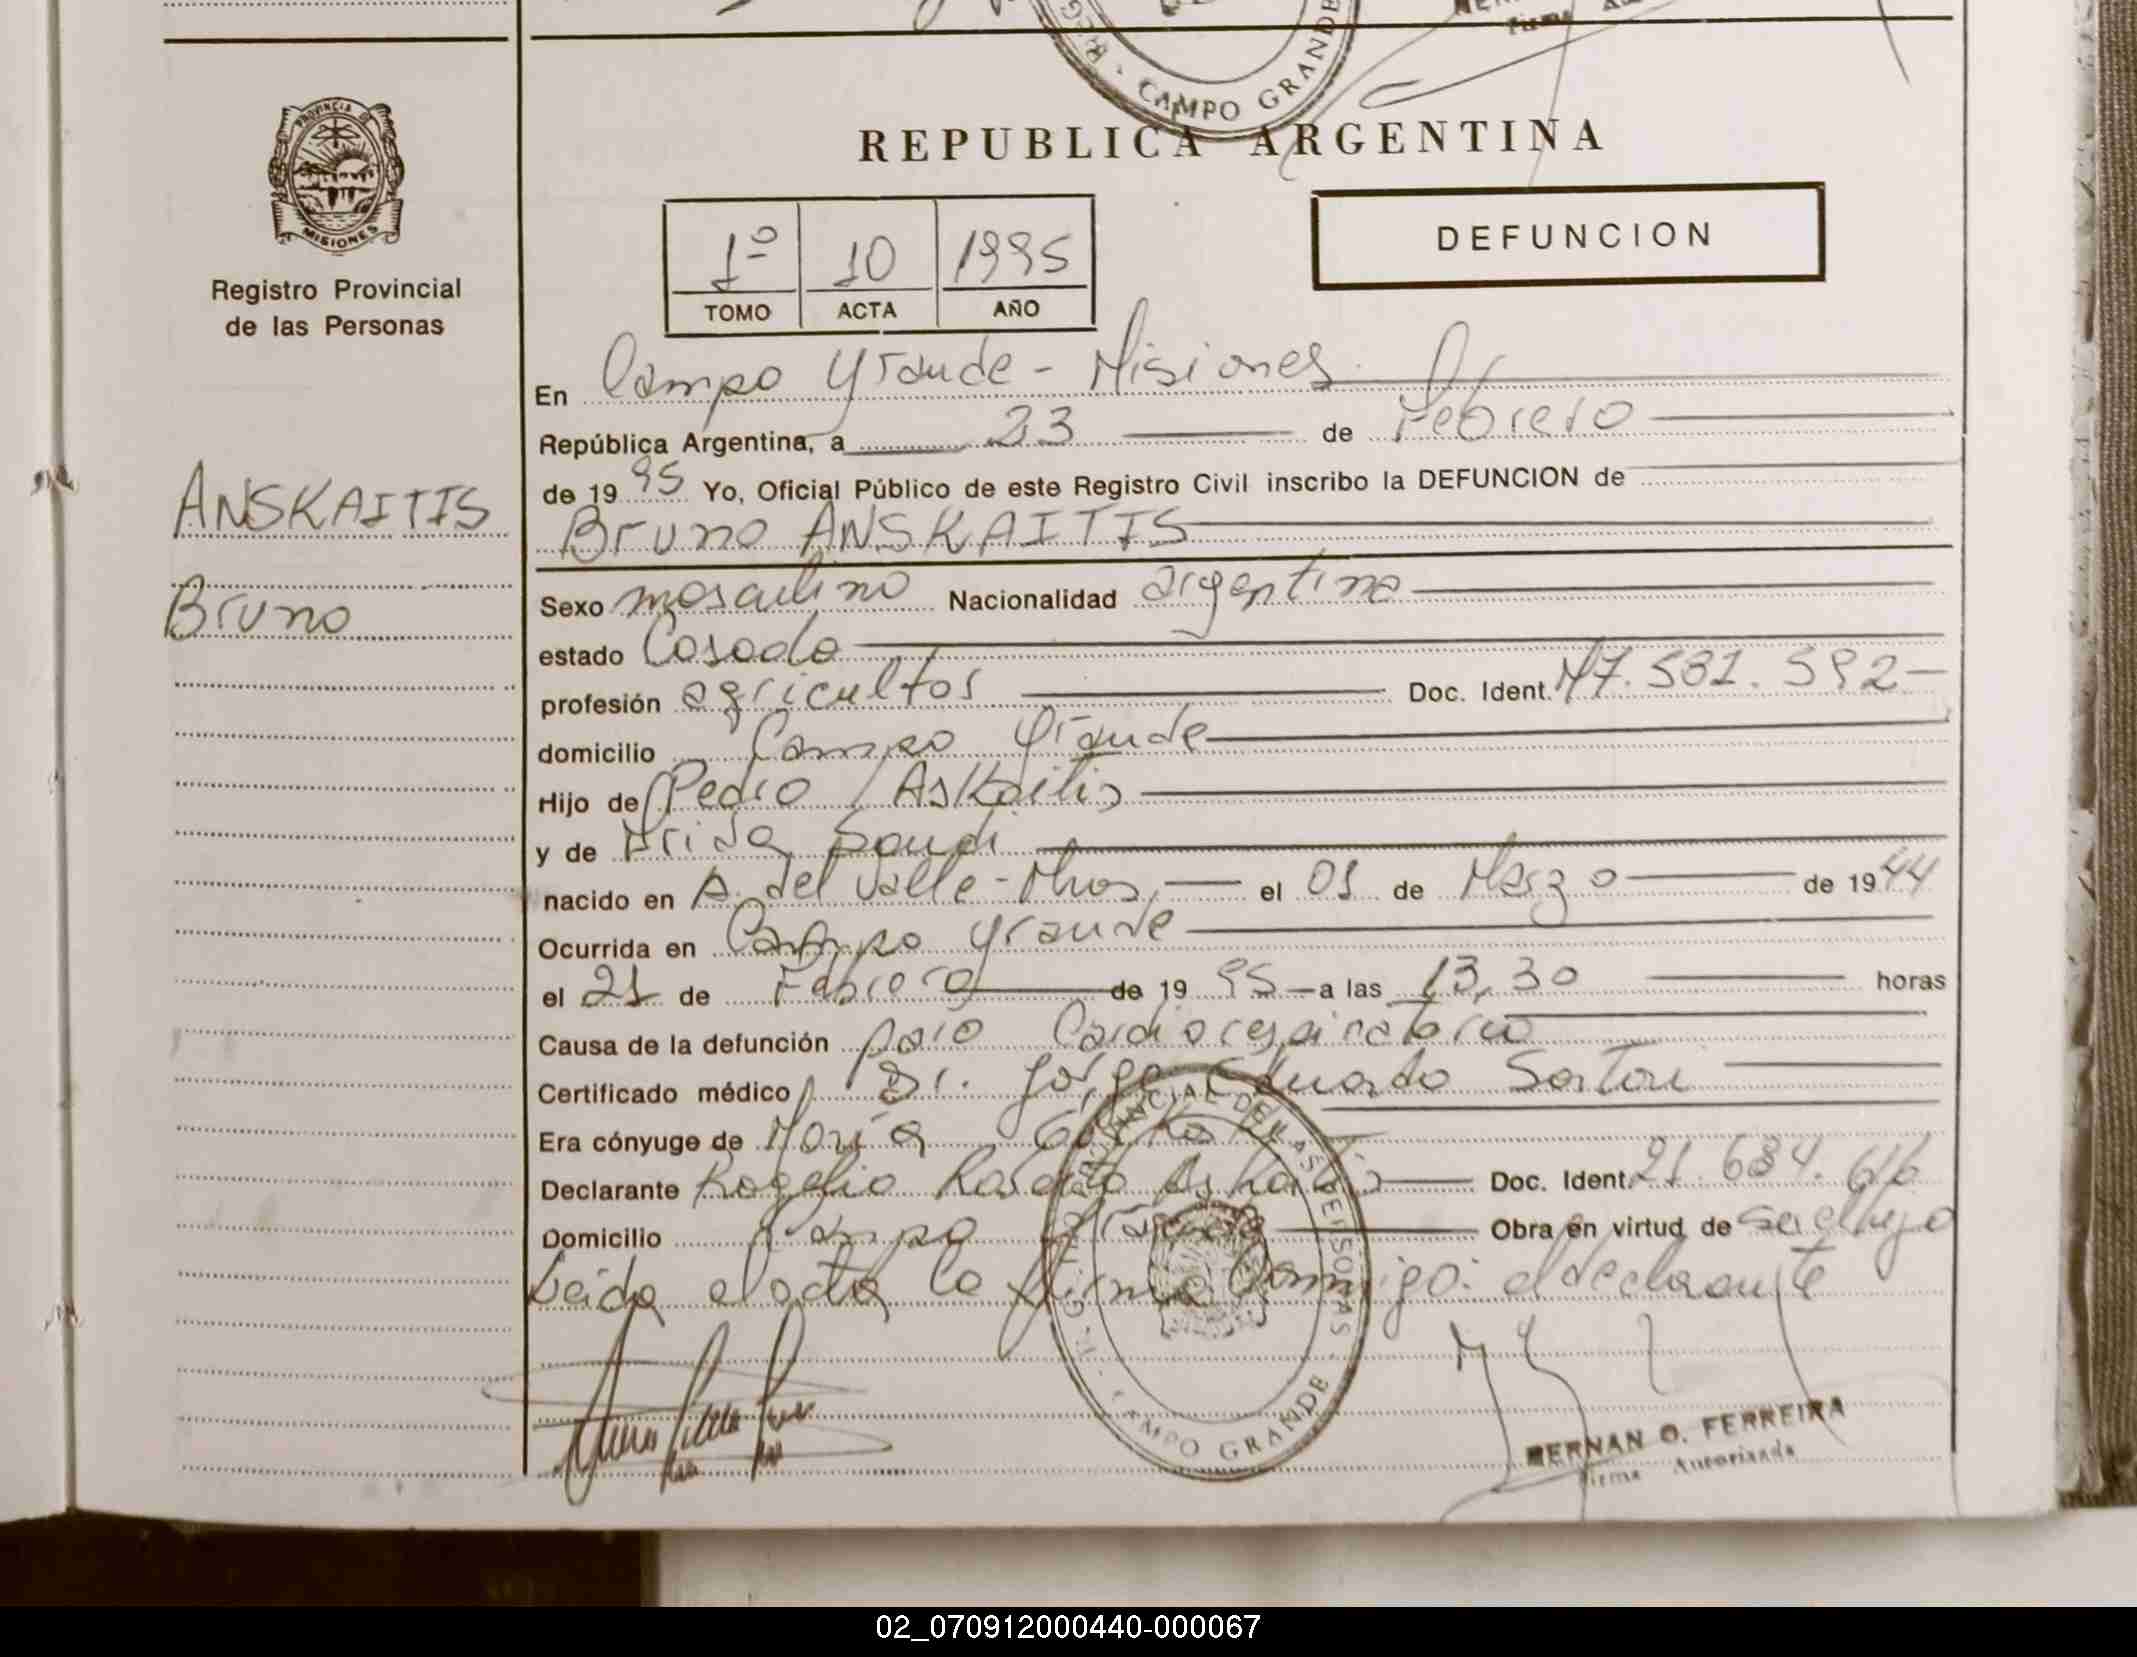 CAMPO GRANDE
REPUBLICA ARGENTINA
PROVINCIA DE
MISIONES
Registro Provincial
de las Personas
1º 10 1995
TOMO ACTA AÑO
DEFUNCION
En Campo Grande - Misiones
República Argentina, a 23 de Febrero
de 1995 Yo, Oficial Público de este Registro Civil inscribo la DEFUNCION de
ANSKAITIS
Bruno
Bruno ANSKAITIS
Sexo masculino Nacionalidad argentina
estado Casado
profesión agricultor Doc. Ident. M7.581.592-
domicilio Campo Grande
Hijo de Pedro Askaitis
y de Frida Saudi
nacido en A. del Valle - Mnes. el 01 de Marzo de 1944
Ocurrida en Campo Grande
el 21 de Febrero de 1995 a las 13,30 horas
Causa de la defunción paro Cardiorespiratorio
Certificado médico Dr. Jorge Eduardo Sartori
Era cónyuge de María
Declarante Rogelio Askaitis Doc. Ident. 21.684.616
Domicilio Campo Grande Obra en virtud de ser hijo
Leída el acta la firma Conmigo: el declarante
CAMPO GRANDE
HERNAN O. FERREIRA
Firma Autorizada
02_070912000440-000067